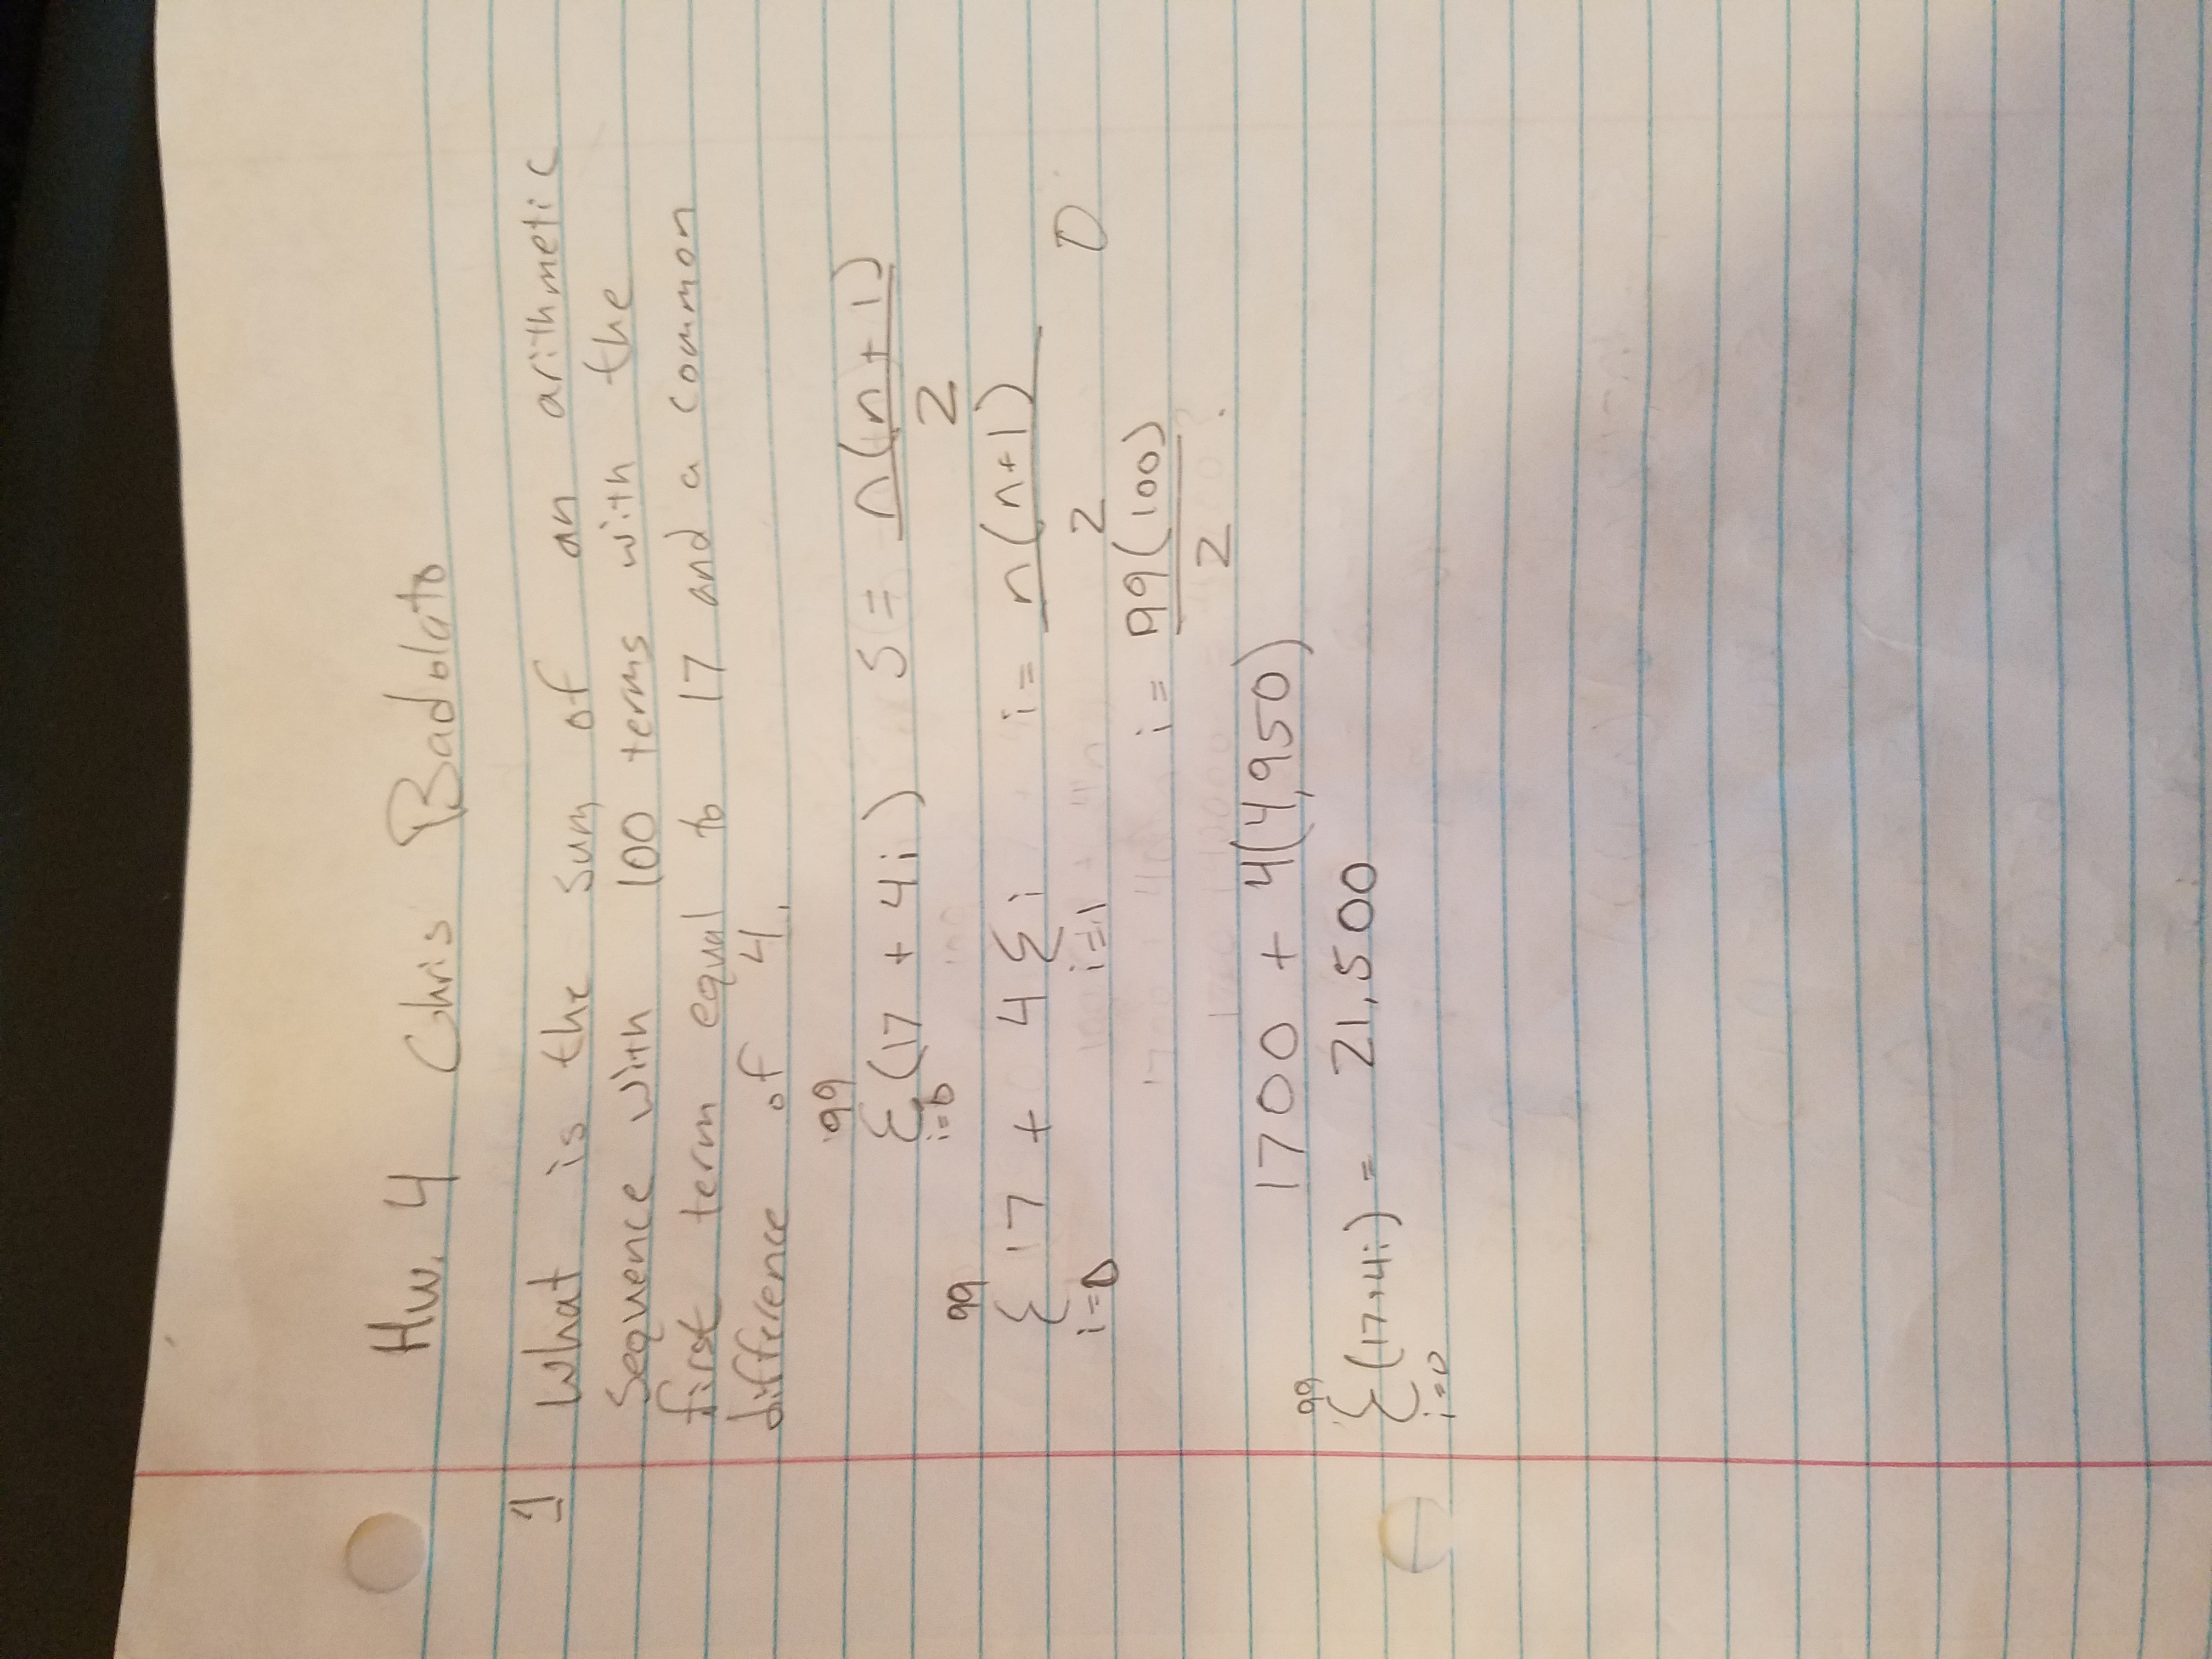 Hw. 4 Chris Badolato
1 What is the sum of an arithmetic
sequence with 100 terms with the
first term equal to 17 and a common
difference of 4.
99
Σ(17 + 4i) S = n(n+1)
i=0 2
99
Σ 17 + 4Σi i = n(n+1)
i=0 i=1 2 0
i = 99(100)
2
1700 + 4(4,950)
99
Σ(17+4i) = 21,500
i=0